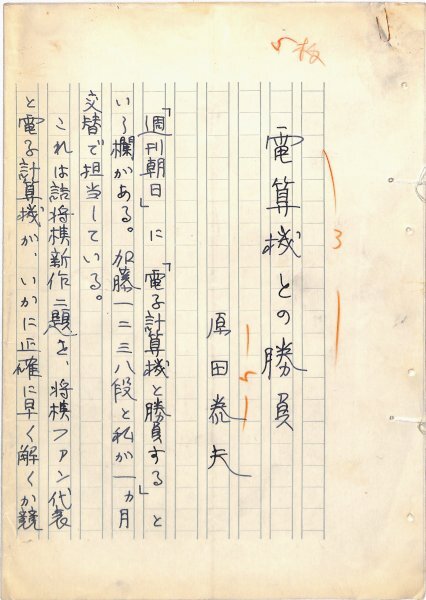 5枚
電算機との勝負
3
原田泰夫
5
「週刊朝日」に「電子計算機と勝負する」と
いう欄がある。加藤一二三八段と私が一カ月
交替で担当している。
これは詰将棋新作二題を、将棋ファン代表
と電子計算機が、いかに正確に早く解くか競